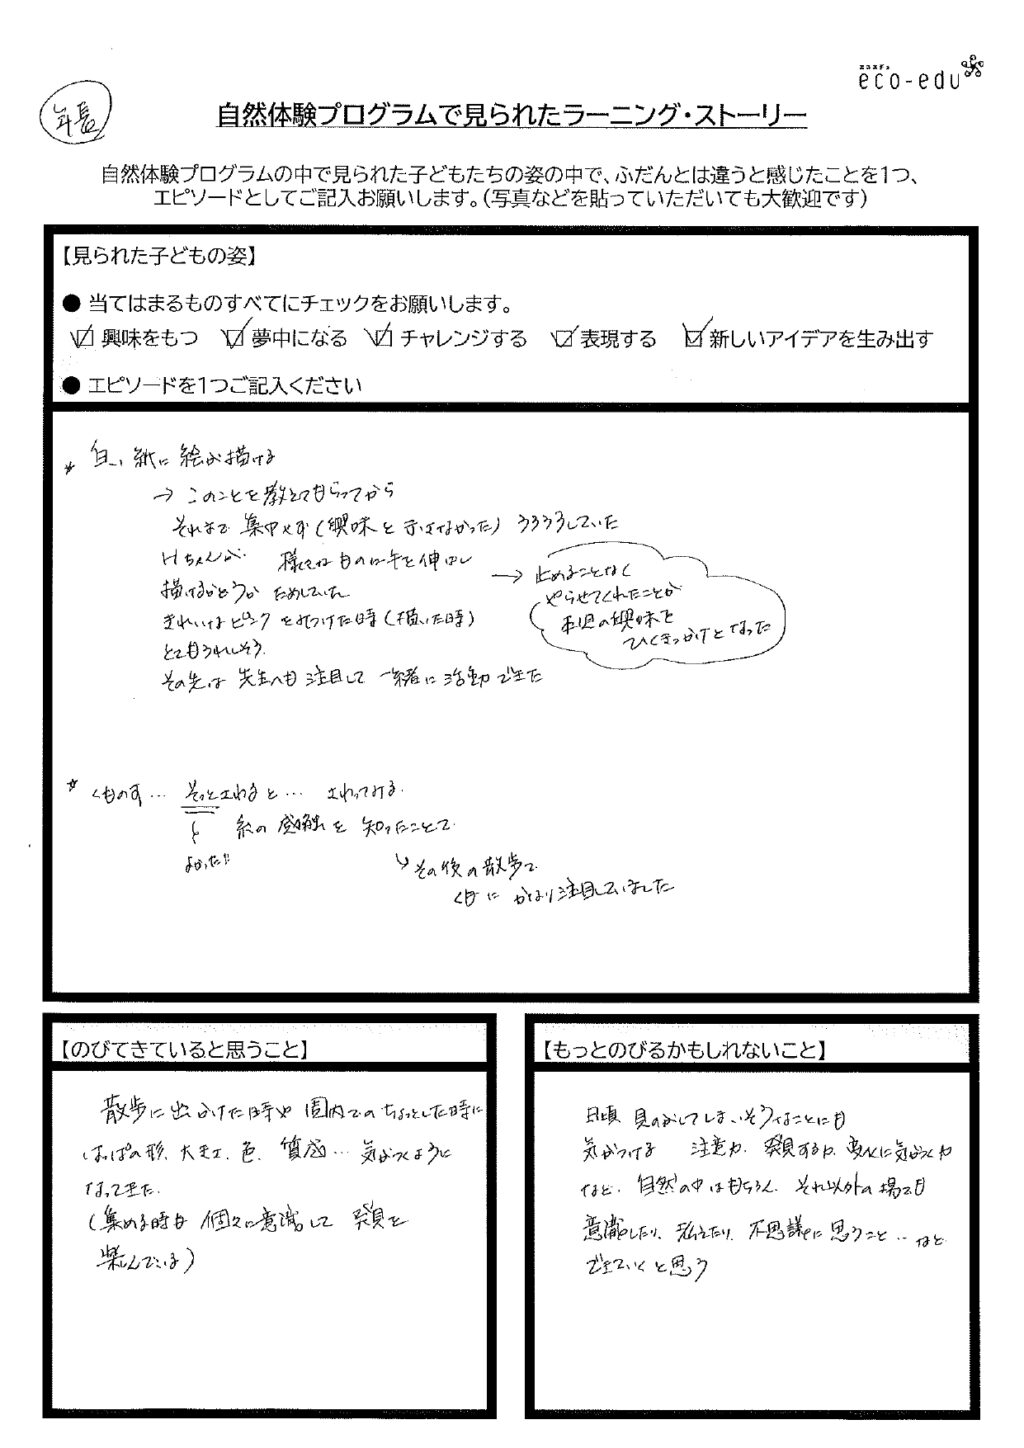 エコエデュ
eco-edu
年長
自然体験プログラムで見られたラーニング・ストーリー
自然体験プログラムの中で見られた子どもたちの姿の中で、ふだんとは違うと感じたことを1つ、
エピソードとしてご記入お願いします。(写真などを貼っていただいても大歓迎です)
【見られた子どもの姿】
● 当てはまるものすべてにチェックをお願いします。
☑ 興味をもつ ☑ 夢中になる ☑ チャレンジする ☑ 表現する ☑ 新しいアイデアを生み出す
● エピソードを1つご記入ください
* 白い紙に絵が描ける
→ このことを教えてもらってから
それまで集中せず(興味を示さなかった)うろうろしていた
Hちゃんが 様々なものに手を伸ばし
描けるかどうか ためしていた
きれいなピンクをみつけた時(描いた時)
とてもうれしそう
その先は 先生へも注目して一緒に活動できた
→ 止めることなく
やらせてくれたことが
本児の興味を
ひくきっかけとなった
* くものす… そっとさわると… さわってみる
糸の感触を知ったことで
よかった!!
↳その後の散歩で
くもにかなり注目していました
【のびてきていると思うこと】
散歩に出かけた時や園内でのちょっとした時に
はっぱの形、大きさ、色、質感… 気がつくように
なってきた
(集める時も個々に意識して発見を
楽しんでいる)
【もっとのびるかもしれないこと】
日頃 見のがしてしまいそうなことにも
気がつける 注意力、発見する力、変化に気がつく力
など、自然の中はもちろん、それ以外の場でも
意識したり、伝えたり、不思議に思うこと…など
できていくと思う